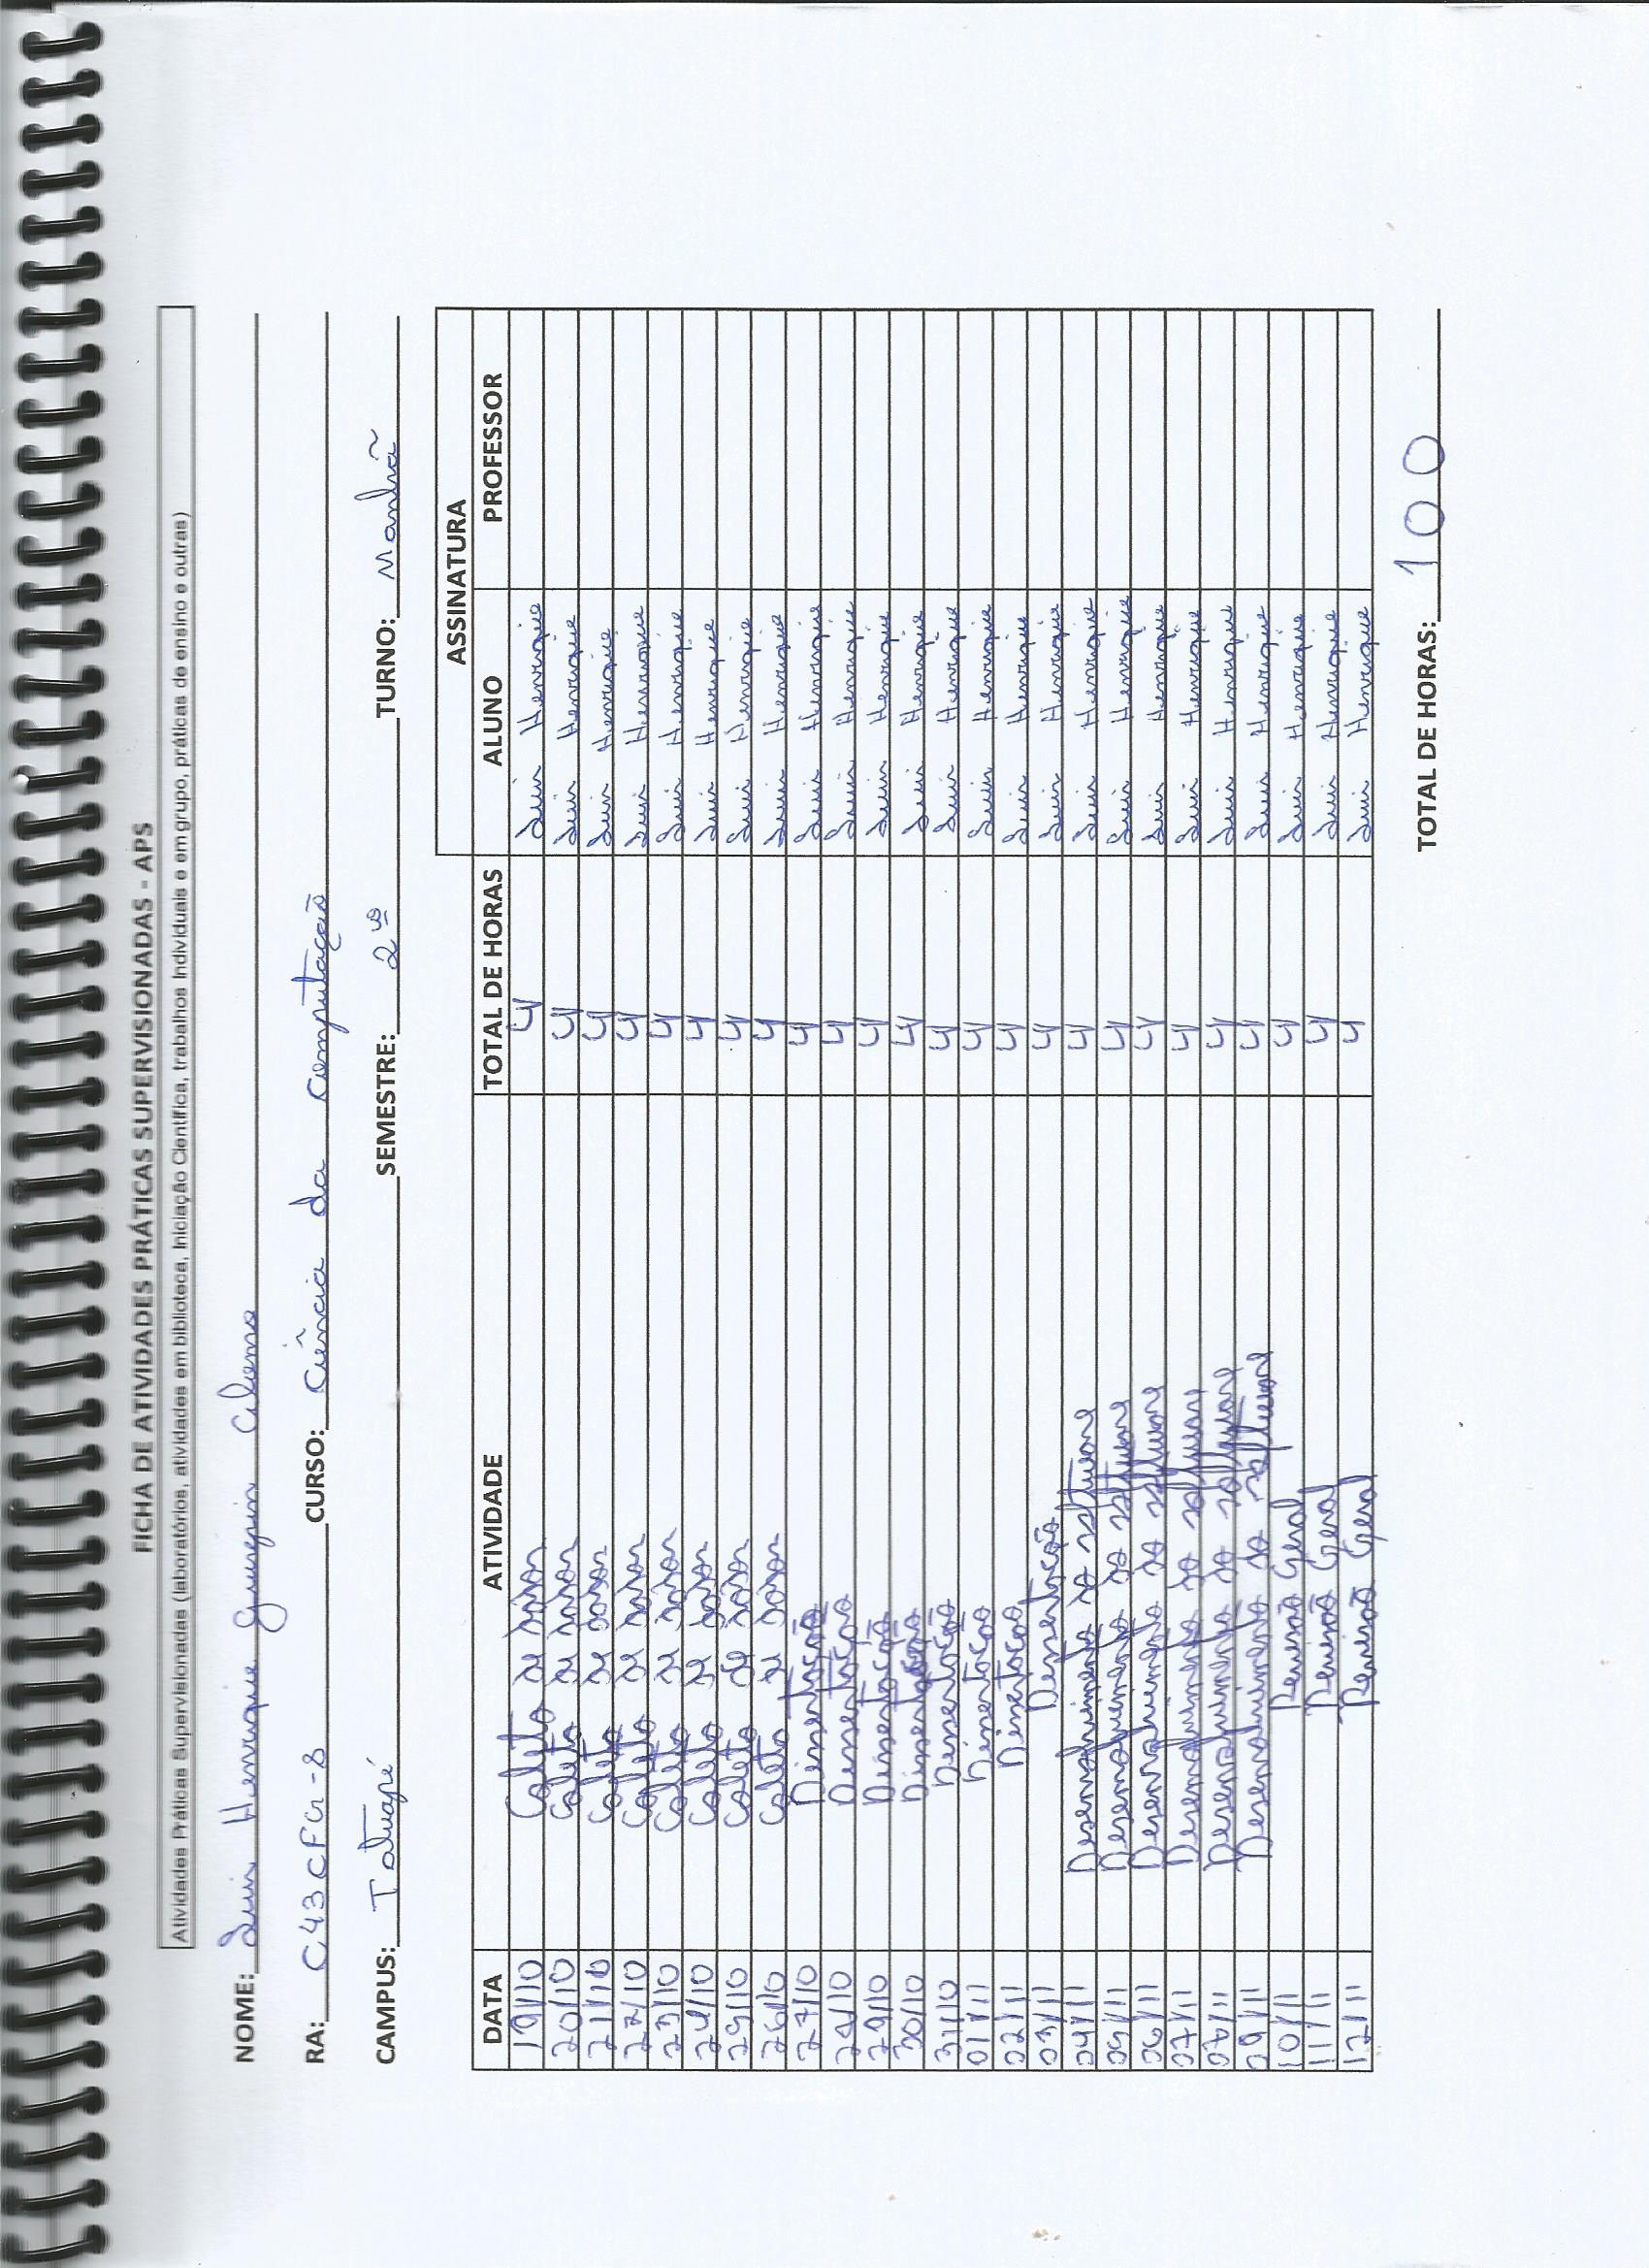 FICHA DE ATIVIDADES PRÁTICAS SUPERVISIONADAS - APS
Atividades Práticas Supervisionadas (laboratórios, atividades em biblioteca, Iniciação Científica, trabalhos Individuais e em grupo, práticas de ensino e outras)
NOME: Luis Henrique
RA: C43CFG-8 CURSO: Ciência da Computação
CAMPUS: Tatuapé SEMESTRE: 2º TURNO: Manhã
ASSINATURA
DATA ATIVIDADE TOTAL DE HORAS ALUNO PROFESSOR
19/10 Coleta de dados 4 Luis Henrique
20/10 Coleta de dados 4 Luis Henrique
21/10 Coleta de dados 4 Luis Henrique
22/10 Coleta de dados 4 Luis Henrique
23/10 Coleta de dados 4 Luis Henrique
24/10 Coleta de dados 4 Luis Henrique
25/10 Coleta de dados 4 Luis Henrique
26/10 Coleta de dados 4 Luis Henrique
27/10 Dissertação 4 Luis Henrique
28/10 Dissertação 4 Luis Henrique
29/10 Dissertação 4 Luis Henrique
30/10 Dissertação 4 Luis Henrique
31/10 Dissertação 4 Luis Henrique
01/11 Dissertação 4 Luis Henrique
02/11 Dissertação 4 Luis Henrique
03/11 Dissertação 4 Luis Henrique
04/11 Desenvolvimento do software 4 Luis Henrique
05/11 Desenvolvimento do software 4 Luis Henrique
06/11 Desenvolvimento do software 4 Luis Henrique
07/11 Desenvolvimento do software 4 Luis Henrique
08/11 Desenvolvimento do software 4 Luis Henrique
09/11 Desenvolvimento do software 4 Luis Henrique
10/11 Revisão Geral 4 Luis Henrique
11/11 Revisão Geral 4 Luis Henrique
12/11 Revisão Geral 4 Luis Henrique
TOTAL DE HORAS: 100